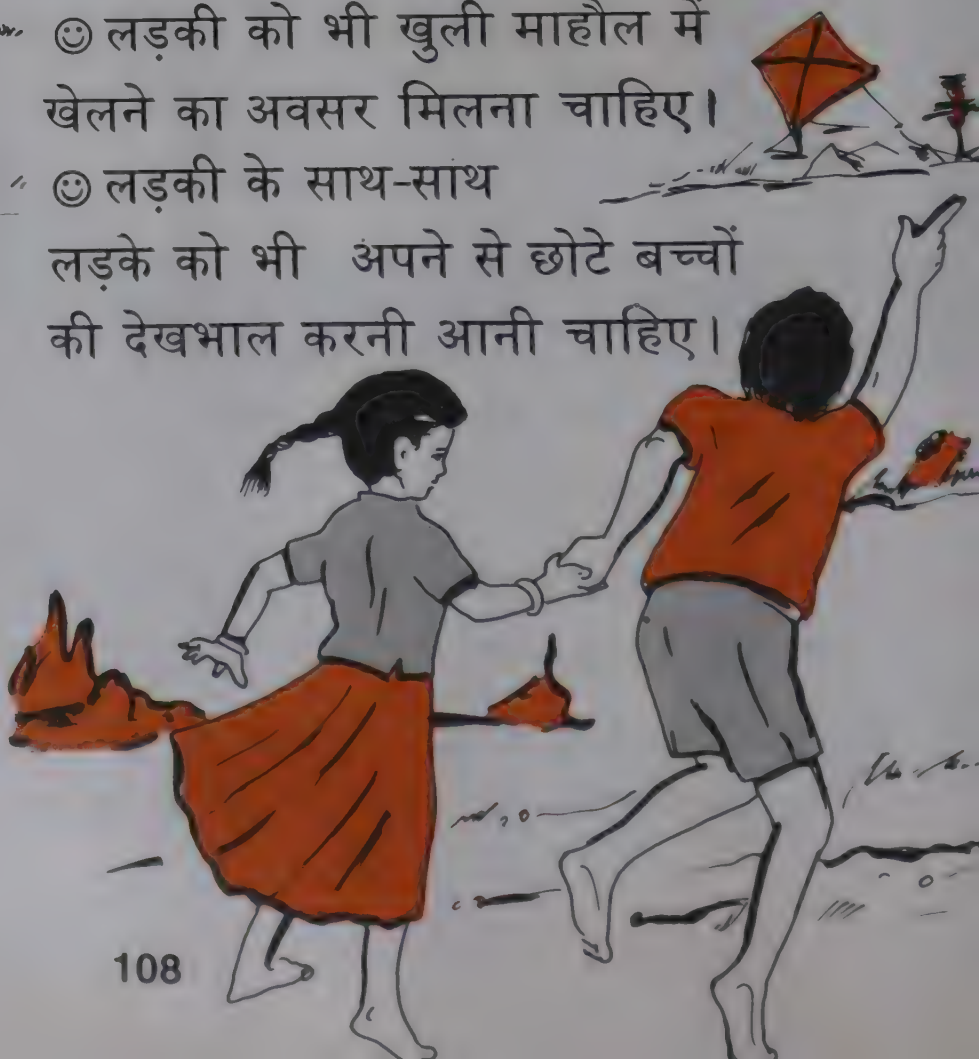 ☺ लड़की को भी खुली माहौल में
खेलने का अवसर मिलना चाहिए।
☺ लड़की के साथ-साथ
लड़के को भी अपने से छोटे बच्चों
की देखभाल करनी आनी चाहिए।
108